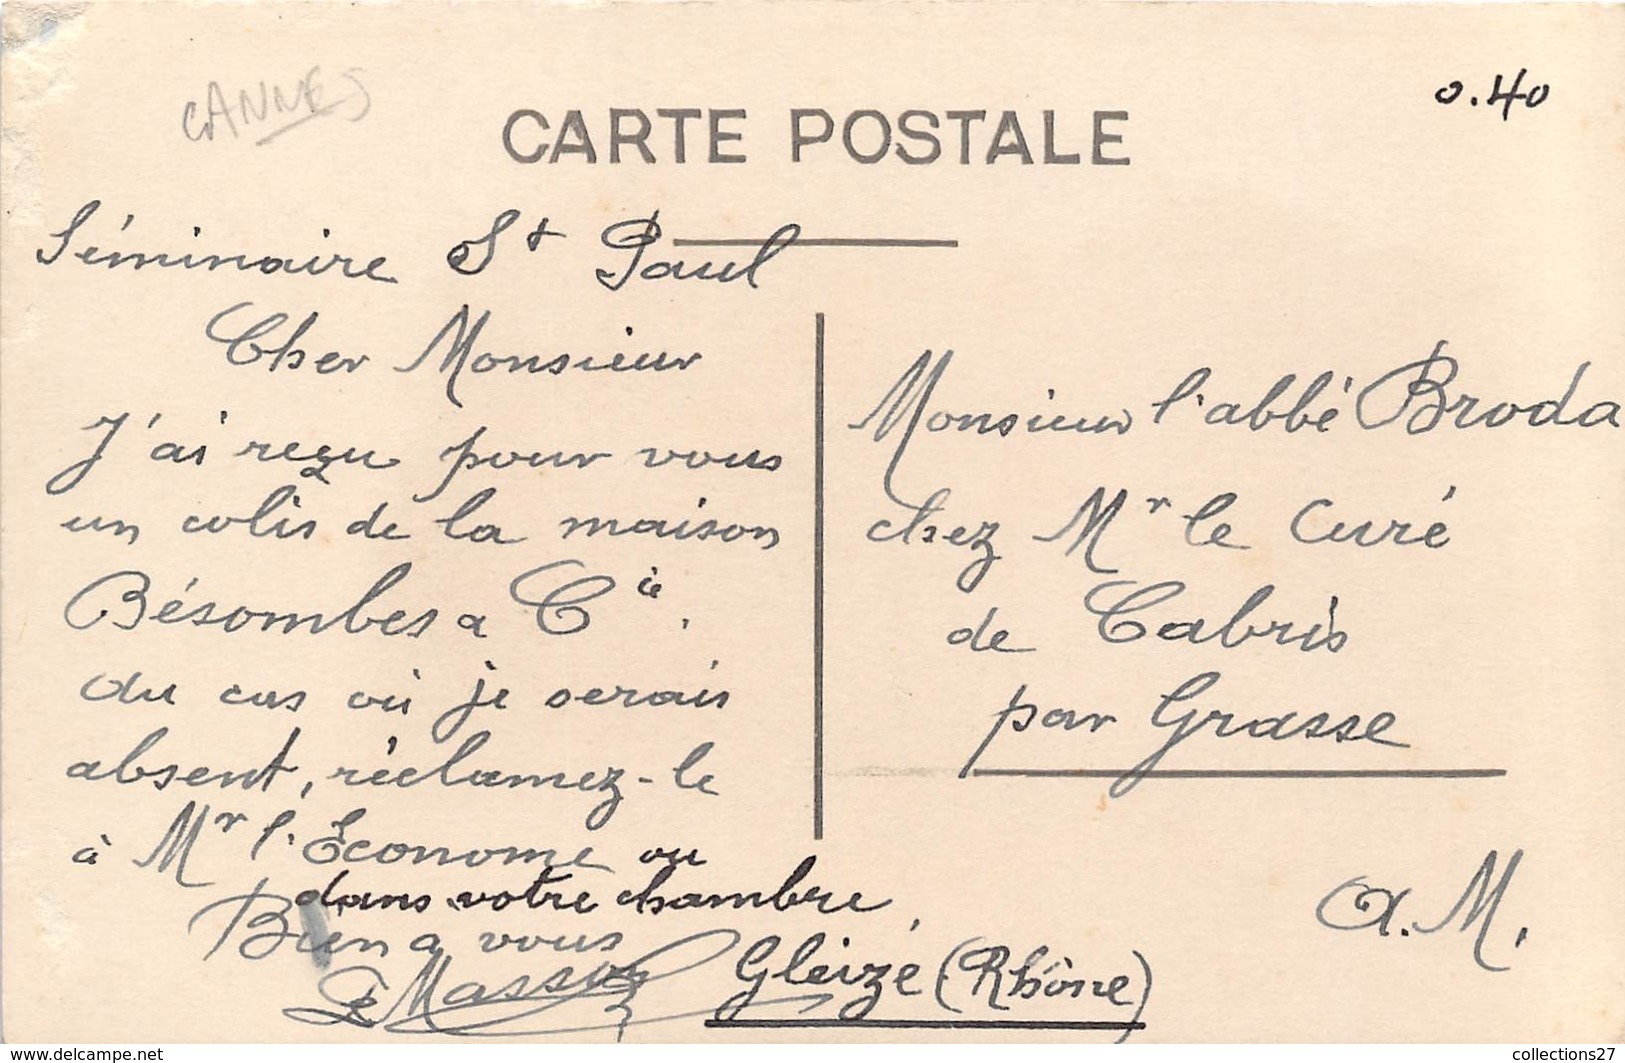 CANNES
0.40
CARTE POSTALE
Séminaire St Paul
Cher Monsieur
J'ai reçu pour vous
un colis de la maison
Bésombes a Cie.
du cas où je serais
absent, réclamez-le
à Mr l'Econome ou
dans votre chambre.
Bien a vous
Masson
Gleizé (Rhône)
Monsieur l'abbé Broda
chez Mr le Curé
de Cabris
par Grasse
A.M.
www.delcampe.net
collections27